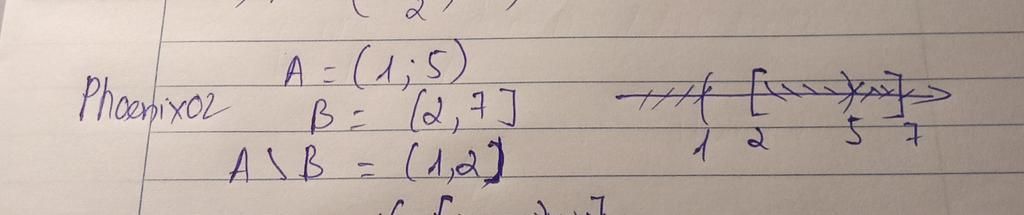 2
A = (1; 5)
Phoenix02
B = [2, 7]
A \ B = (1, 2)
1 2 5 7